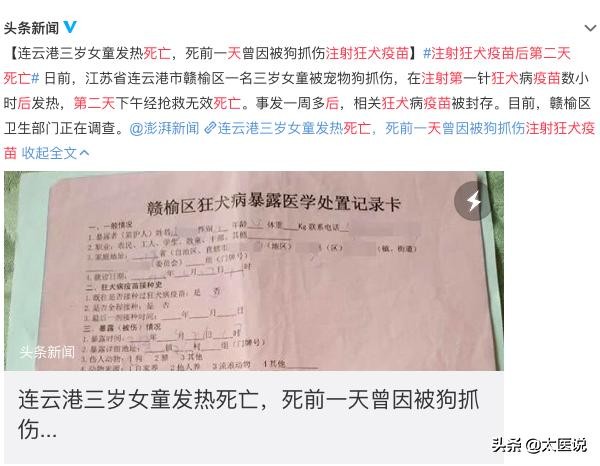 头条新闻
【连云港三岁女童发热死亡，死前一天曾因被狗抓伤注射狂犬疫苗】#注射狂犬疫苗后第二天
死亡# 日前，江苏省连云港市赣榆区一名三岁女童被宠物狗抓伤，在注射第一针狂犬病疫苗数小
时后发热，第二天下午经抢救无效死亡。事发一周多后，相关狂犬病疫苗被封存。目前，赣榆区
卫生部门正在调查。@澎湃新闻 连云港三岁女童发热死亡，死前一天曾因被狗抓伤注射狂犬疫
苗 收起全文
赣榆区狂犬病暴露医学处置记录卡
一、一般情况
1.暴露者（监护人）姓名 性别 年龄 体重 Kg 联系电话
2.职业：农民、工人、学生、教童、干部、其他
3.家庭地址： 省（自治区、直辖市 （地区） （区） （镇，街道）
（委员会） 组（门牌号）
4.就诊日期： 年 月 日 时
二、狂犬病疫苗接种史
1.既往是否接种过狂犬病疫苗：是 否
2.是否全程接种：是 否
3.最后一剂接种时间： 年 月 日
三、暴露（被伤）情况
1.暴露时间： 年 月 日 时
2.暴露详细地址： 镇 村 组（门牌号）
3.伤人动物：1 狗 2 猫 3 其他
4.动物来源：1 自家养 2 他人养 3 流浪动物 4 其他
头条新闻
连云港三岁女童发热死亡，死前一天曾因被狗抓
伤...
头条 @太医说